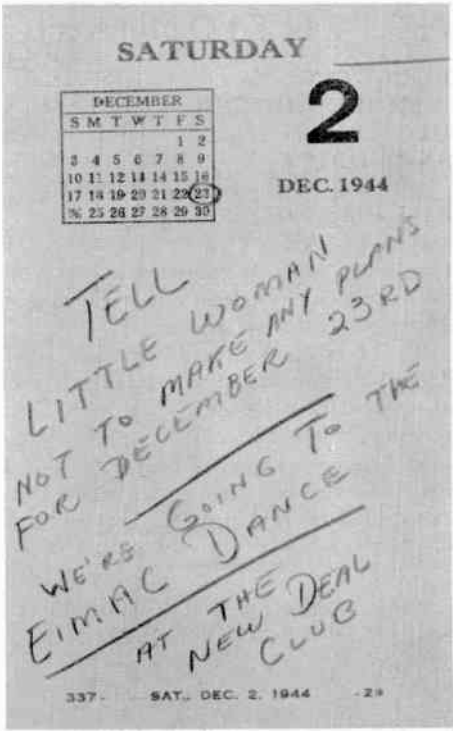 SATURDAY
2
DEC. 1944
DECEMBER
S M T W T F S
1 2
3 4 5 6 7 8 9
10 11 12 13 14 15 16
17 18 19 20 21 22 23
25 26 27 28 29 30
TELL
LITTLE WOMAN
NOT TO MAKE ANY PLANS
FOR DECEMBER 23RD
WE'RE GOING TO THE
EIMAC DANCE
AT THE
NEW DEAL
CLUB
337- SAT., DEC. 2, 1944 -29